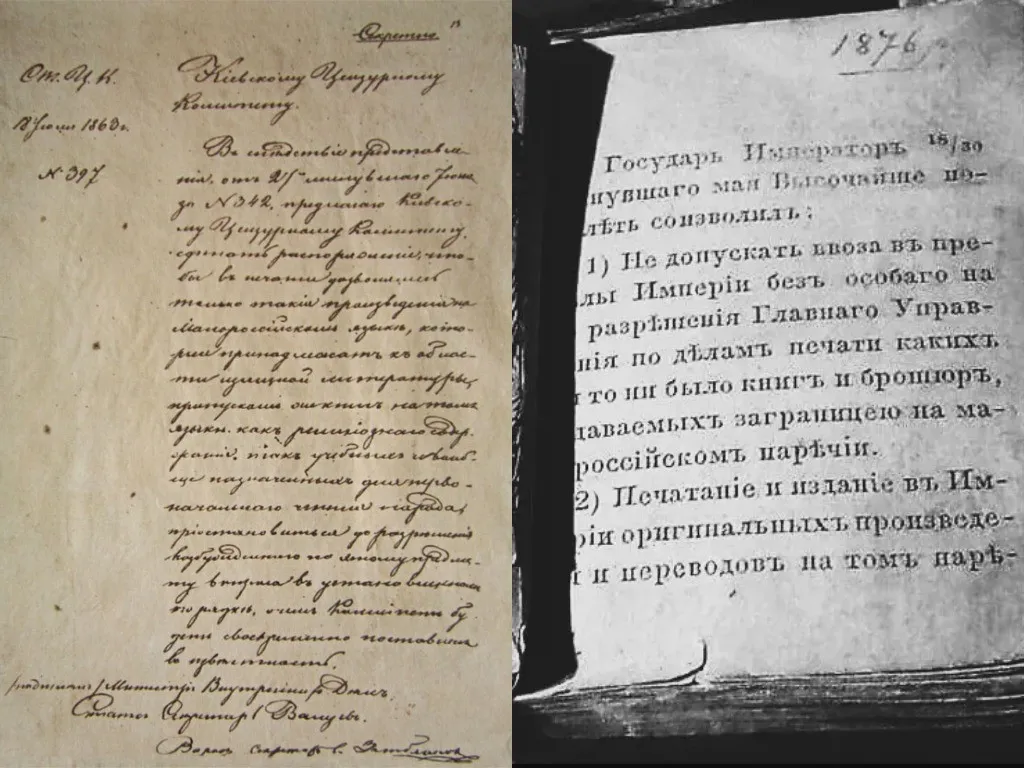 Секретно
Ц. К.
Кіевскому Цензурному
Комитету.
18 Іюля 1863 г.
№ 397
Въ слѣдствіе представле-
нія, отъ 27 минувшаго Іюня
за № 342, предлагаю Кіевско-
му Цензурному Комитету,
сдѣлать распоряженіе, что-
бы къ печати дозволялись
только такія произведенія на
Малороссійскомъ языкѣ, кото-
рыя принадлежатъ къ облас-
ти изящной литературы,
пропускомъ же книгъ на томъ
языкѣ какъ религіознаго содер-
жанія, такъ учебныхъ и вооб-
ще назначаемыхъ для перво-
начальнаго чтенія народа,
пріостановиться до разрѣшенія
возбужденнаго по этому предме-
ту вопроса въ установленномъ
порядкѣ, о чемъ Комитетъ бу-
детъ своевременно поставленъ
въ извѣстность.
/подписалъ/ Министръ Внутреннихъ Дѣлъ,
Статсъ Секретарь Валуевъ.
Вѣрно: секретарь
1876 г.
Государь Императоръ 18/30
нувшаго мая Высочайше по-
лѣть соизволилъ:
1) Не допускать ввоза въ пре-
лы Имперіи безъ особаго на
разрѣшенія Главнаго Управ-
нія по дѣламъ печати какихъ
то ни было книгъ и брошюръ,
даваемыхъ заграницею на ма-
россійскомъ нарѣчіи.
2) Печатаніе и изданіе въ Им-
ріи оригинальныхъ произведе-
и переводовъ на томъ нарѣ-